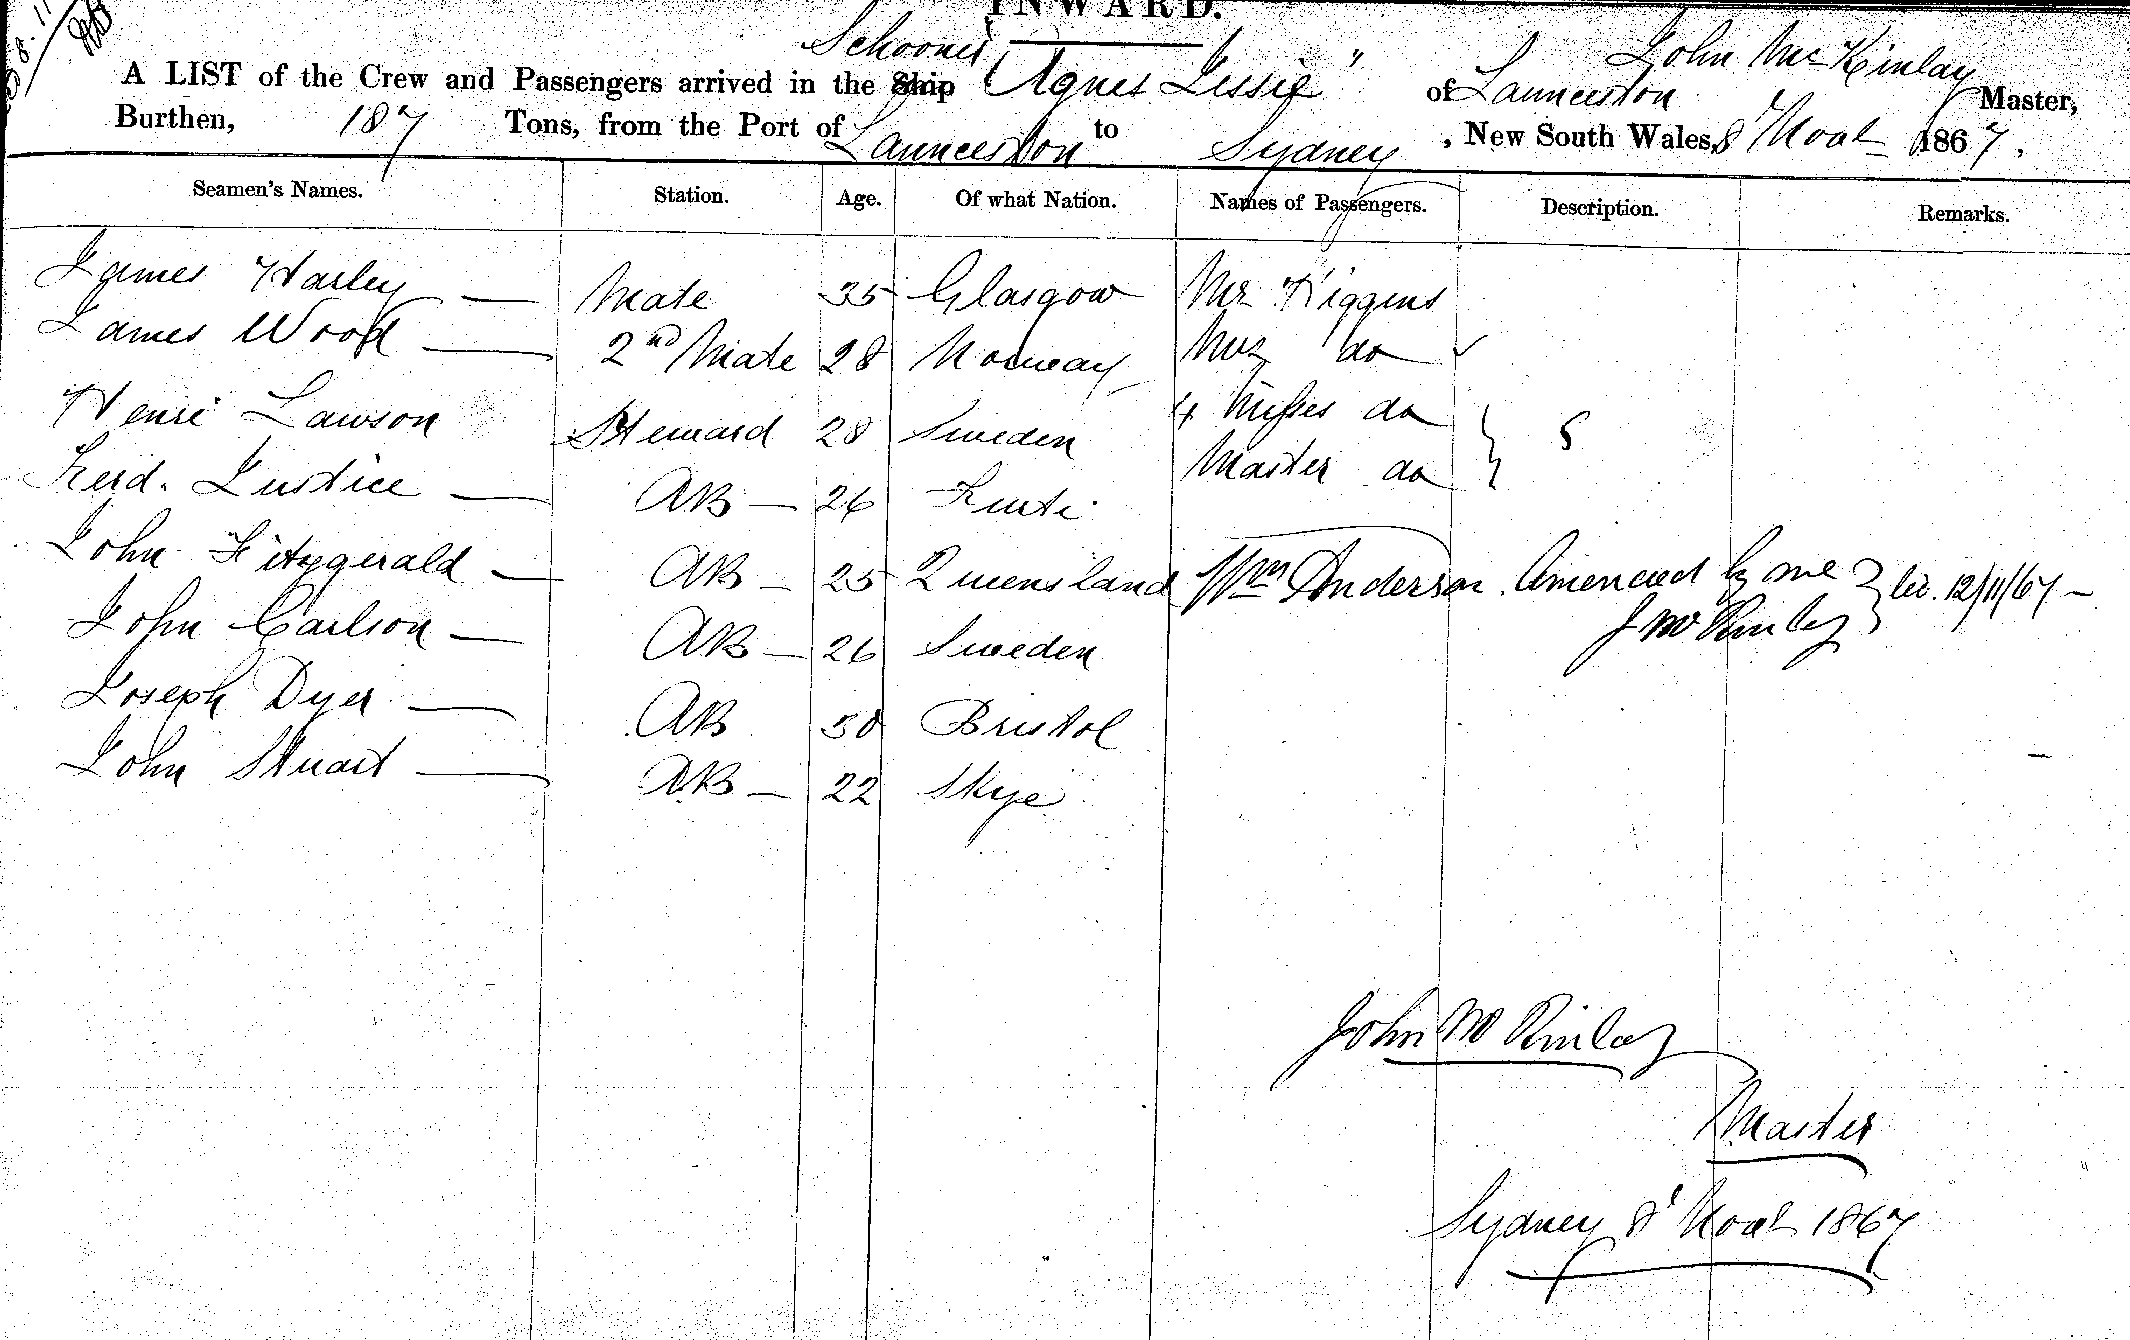 INWARD.
8.11
Schooner John McKinlay
A LIST of the Crew and Passengers arrived in the Ship "Agnes Jessie" of Launceston Master,
Burthen, 187 Tons, from the Port of Launceston to Sydney, New South Wales, 8 Novr 1867.
Seamen's Names. Station. Age. Of what Nation. Names of Passengers. Description. Remarks.
James Harley — Mate 35 Glasgow Mr Higgins
James Wood — 2nd Mate 28 Norway Mrs do
Henri Lawson Steward 28 Sweden 4 Misses do } 5
Master do
Ferd. Justice — AB — 26
John Fitzgerald — AB — 25 Queensland Wm Anderson. Amended by me } 12/11/67 —
J McKinlay
John Carlson — AB — 26 Sweden
Joseph Dyer — AB 30 Bristol
John Stuart — AB — 22 Skye
John McKinlay
Master
Sydney 8 Novr 1867